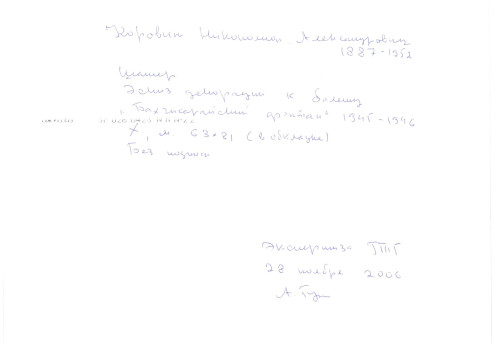 Коровин Александрович
1887-1952
Эскиз декорации к балету
„Бахчисарайский фонтан“ 1945-1946
Х, м. 63×81 (в обкладке)
Без подписи
Экспертиза ГТГ
28 ноября 2006
А.